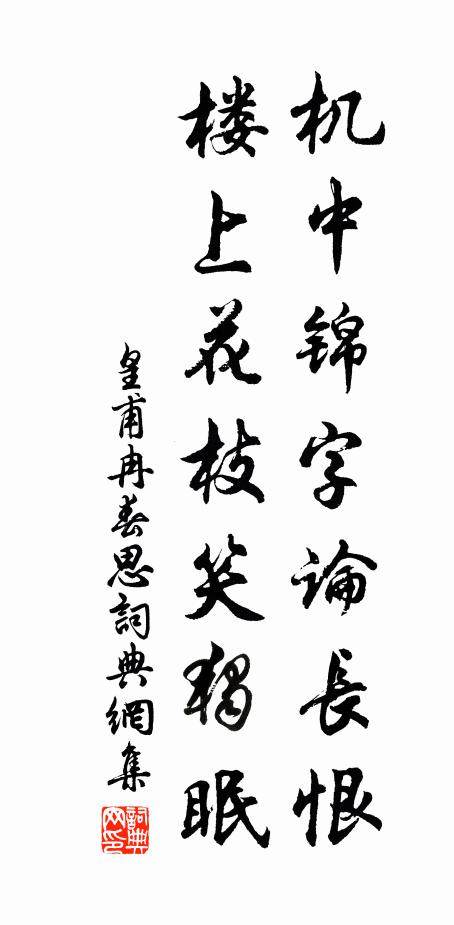 机中锦字論長恨
楼上花枝笑獨眠
皇甫冉春思詞典網集
詞典
网印